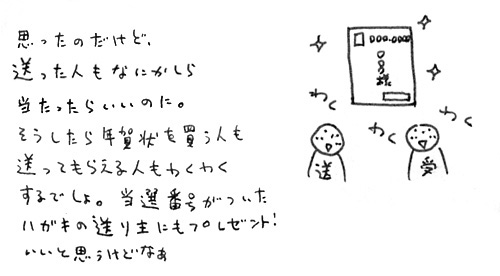 思ったのだけど、
送った人もなにかしら
当たったらいいのに。
そうしたら年賀状を買う人も
送ってもらえる人もわくわく
するでしょ。当選番号がついた
ハガキの送り主にもプレゼント!
いいと思うけどなぁ
000.0000
わく
わく
わく
送
受